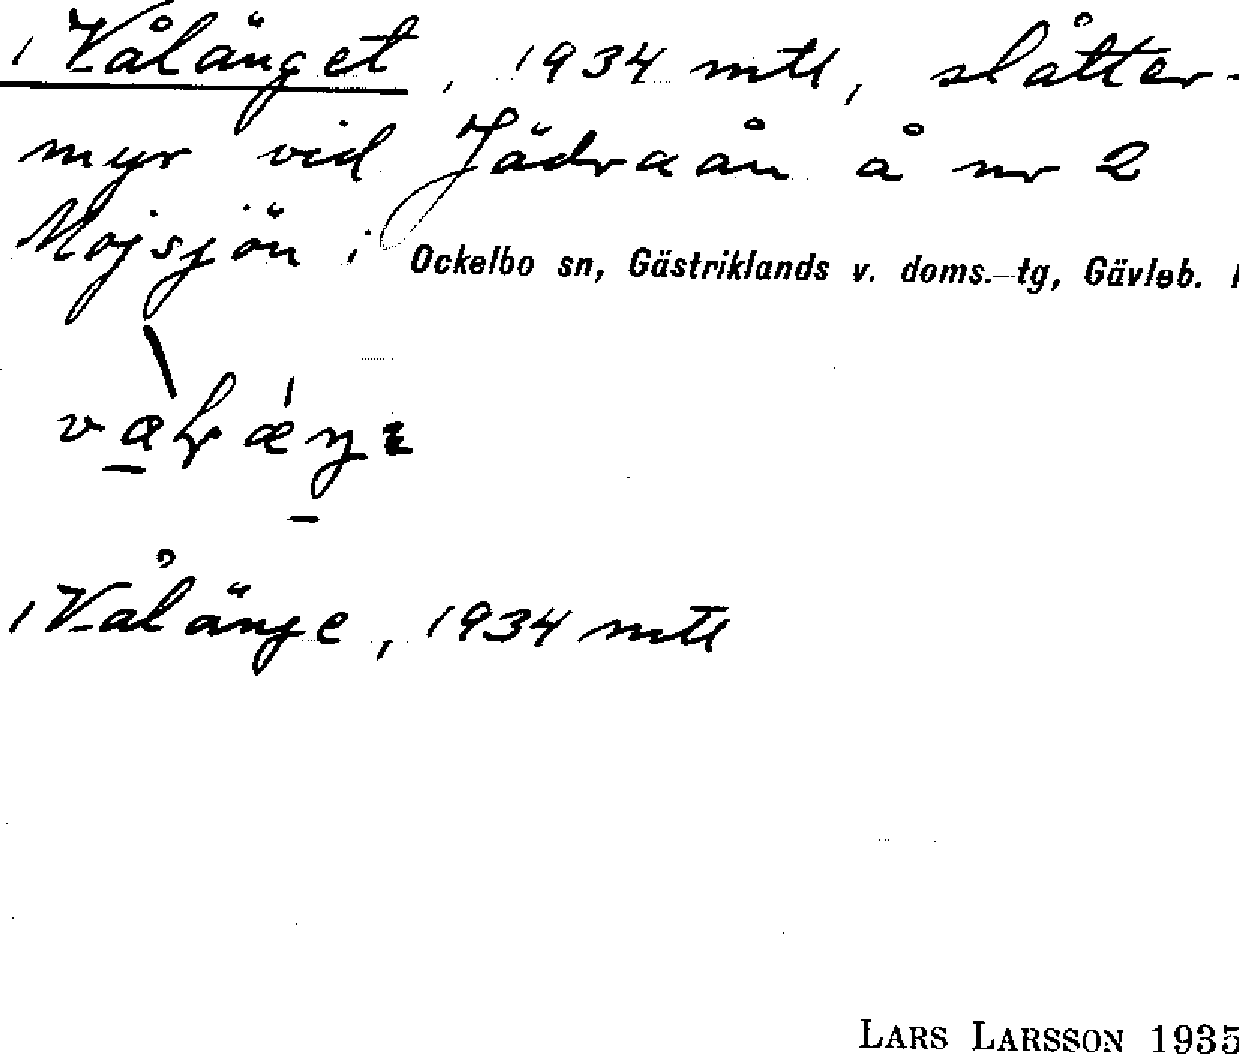 / Vålänget, 1934 mtl, slåtter-
myr vid Jädraån å nr 2
Mojsjön i Ockelbo sn, Gästriklands v. doms.-tg, Gävleb. l
/ Vålänge, 1934 mtl
LARS LARSSON 1935